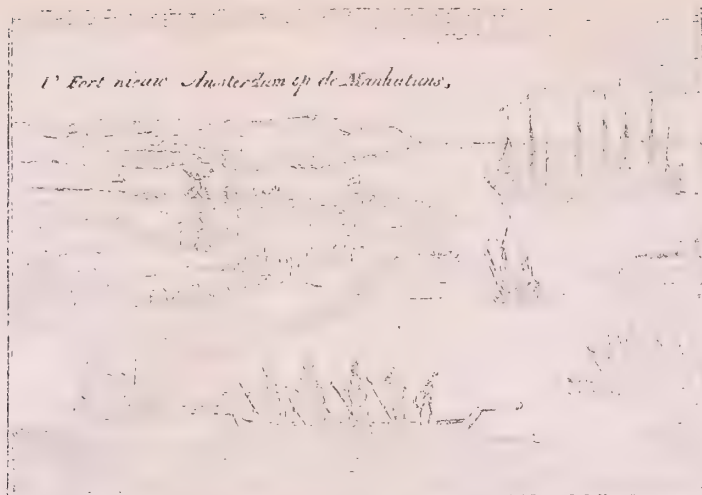 t' Fort nieuw Amsterdam op de Manhatans,